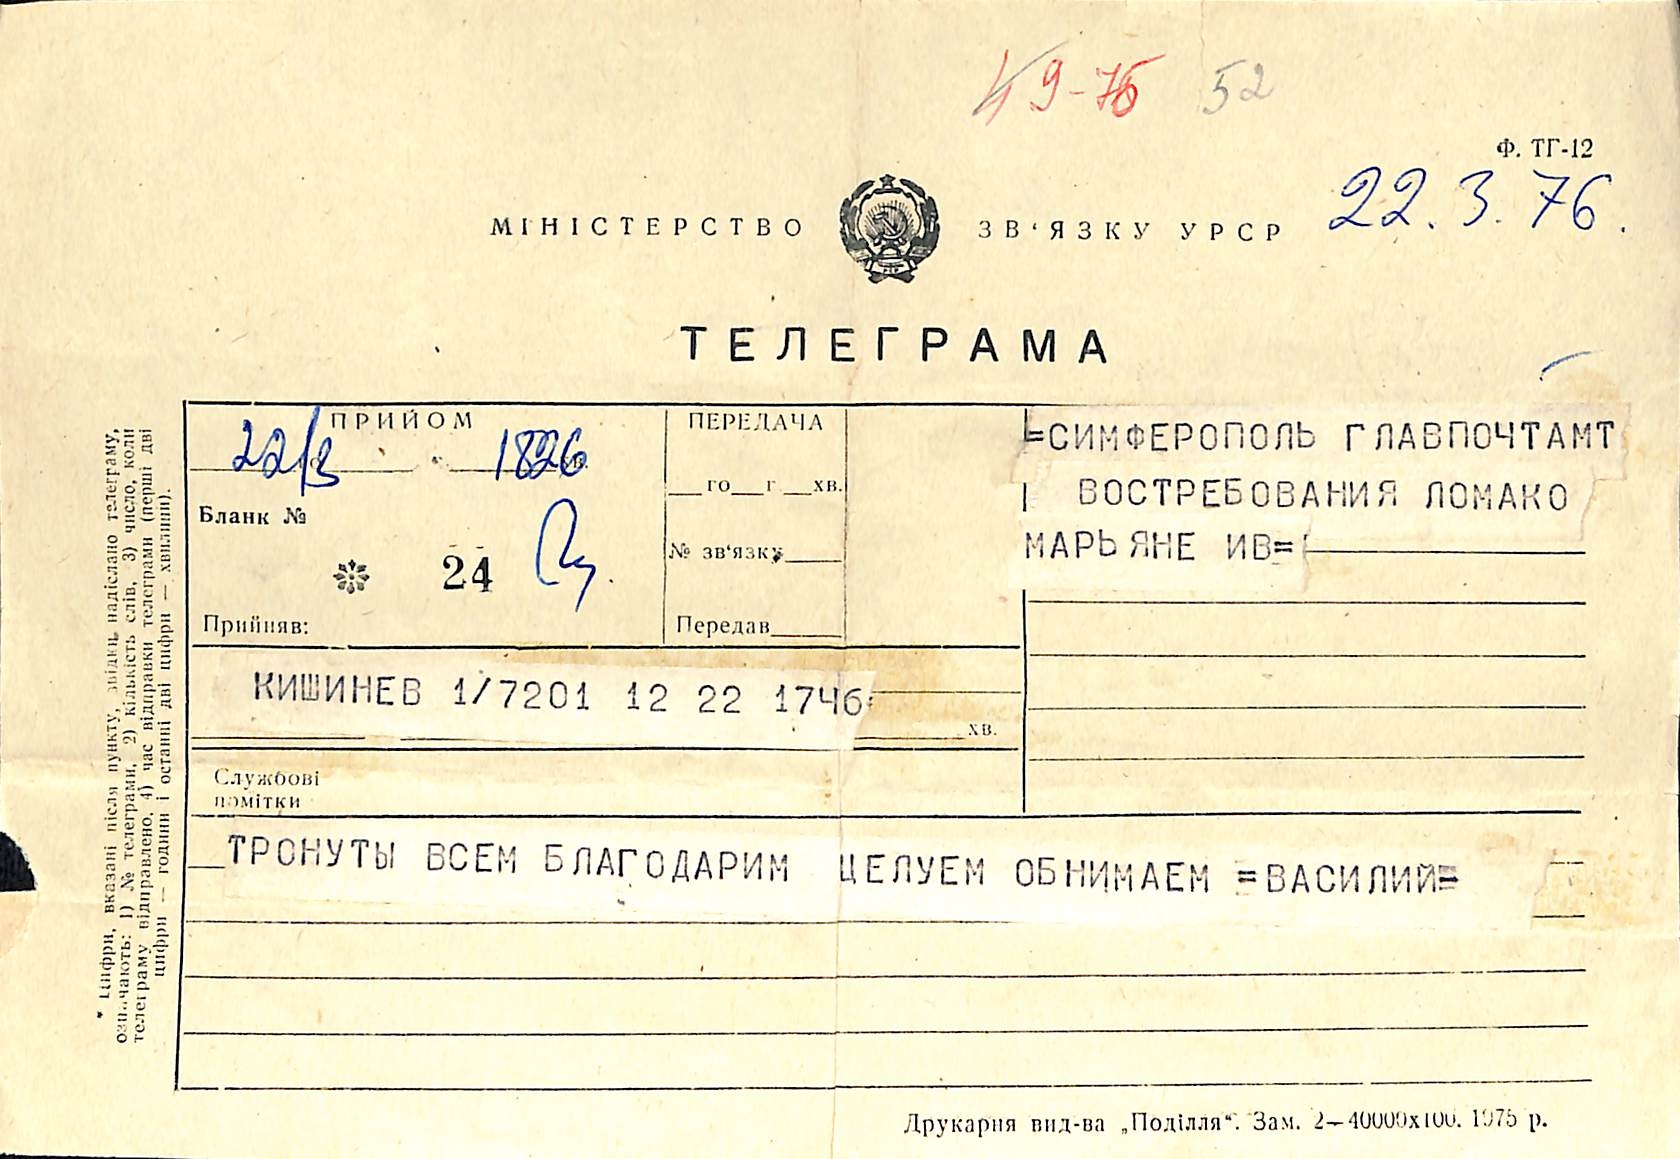 49-76 52
Ф. ТГ-12
22.3.76.
МІНІСТЕРСТВО ЗВ'ЯЗКУ УРСР
ТЕЛЕГРАМА
ПРИЙОМ
22/3 1826 хв.
Бланк №
24
Прийняв:
ПЕРЕДАЧА
го г хв.
№ зв'язку
Передав
=СИМФЕРОПОЛЬ ГЛАВПОЧТАМТ
ВОСТРЕБОВАНИЯ ЛОМАКО
МАРЬЯНЕ ИВ=
КИШИНЕВ 1/7201 12 22 1746=
хв.
Службові
помітки
ТРОНУТЫ ВСЕМ БЛАГОДАРИМ ЦЕЛУЕМ ОБНИМАЕМ =ВАСИЛИЙ=
* Цифри, вказані після пункту, звідки надіслано телеграму,
означають: 1) № телеграми, 2) кількість слів, 3) число, коли
телеграму відправлено, 4) час відправки телеграми (перші дві
цифри — години і останні дві цифри — хвилини).
Друкарня вид-ва „Поділля“. Зам. 2—40000х100. 1975 р.